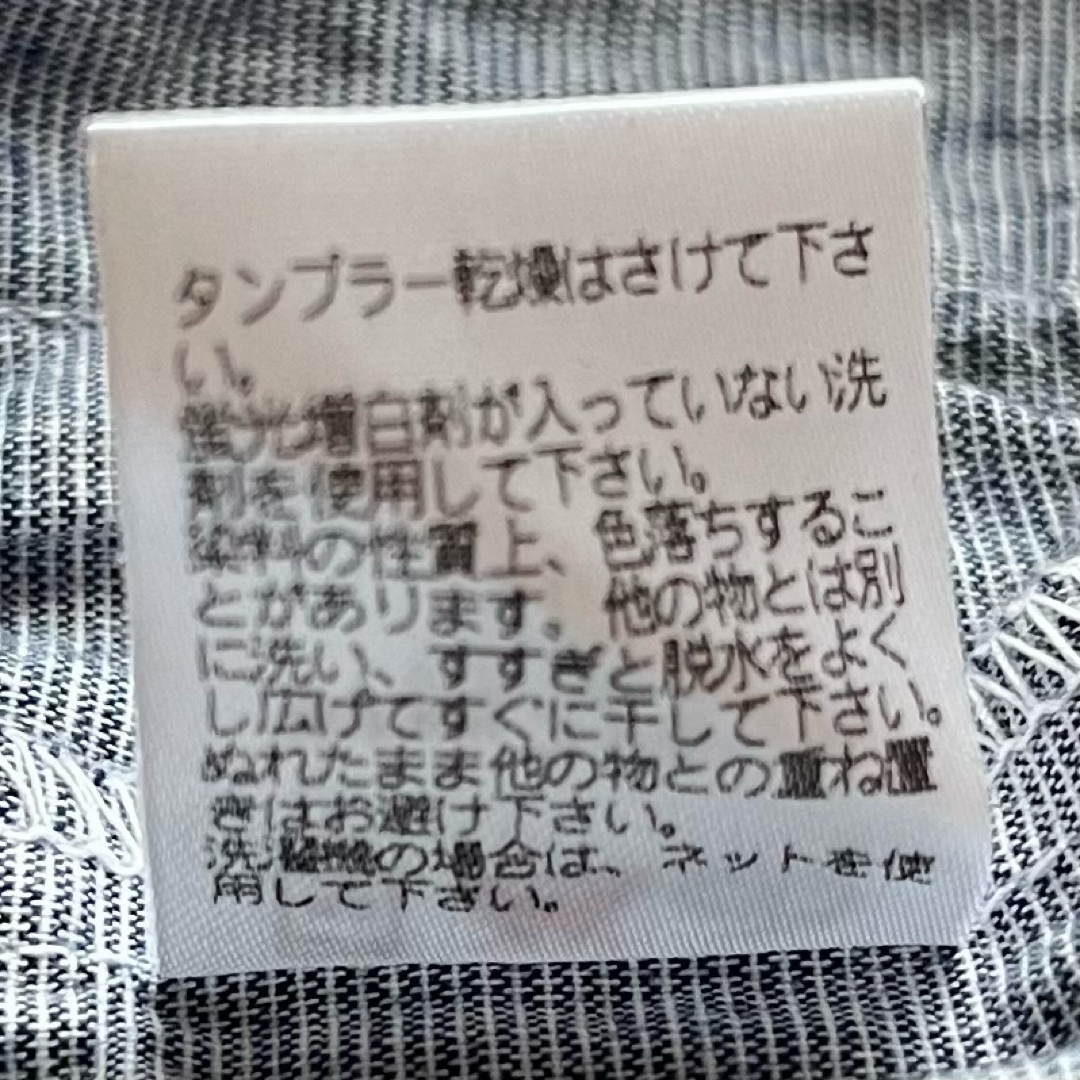 タンブラー乾燥はさけて下さ
い。
蛍光増白剤が入っていない洗
剤を使用して下さい。
染料の性質上、色落ちするこ
とがあります。他の物とは別
に洗い、すすぎと脱水をよく
し広げてすぐに干して下さい。
ぬれたまま他の物との重ね置
きはお避け下さい。
洗濯機の場合は、ネットを使
用して下さい。